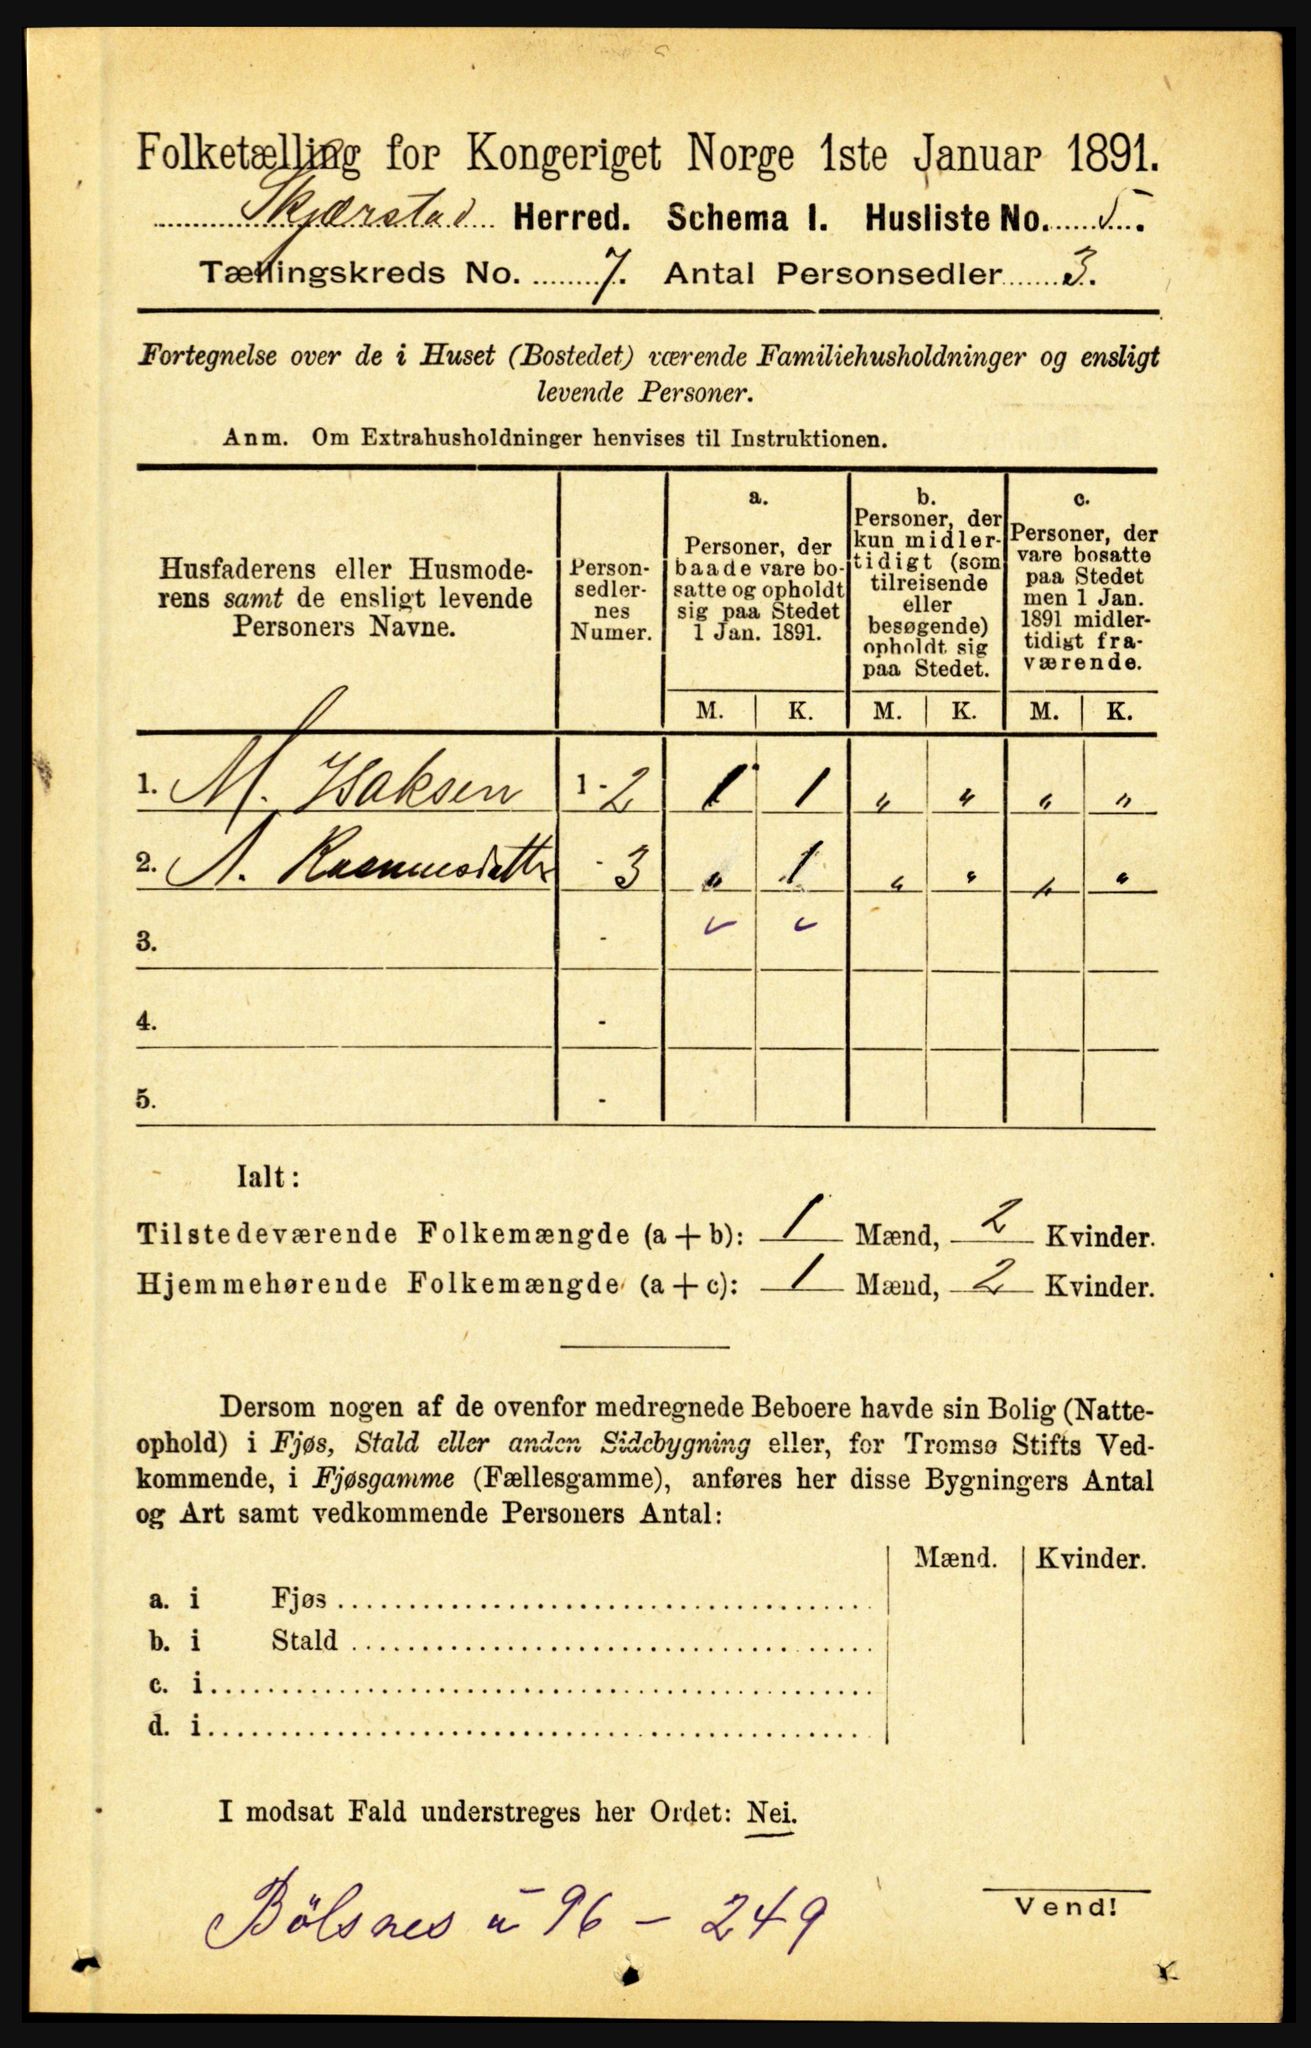 Folketælling for Kongeriget Norge 1ste Januar 1891.
Skjærstad Herred. Schema I. Husliste No. 5.
Tællingskreds No. 7. Antal Personsedler 3.
Fortegnelse over de i Huset (Bostedet) værende Familiehusholdninger og ensligt
levende Personer.
Anm. Om Extrahusholdninger henvises til Instruktionen.
Husfaderens eller Husmode-
rens samt de ensligt levende
Personers Navne.
Person-
sedler-
nes
Numer.
a.
Personer, der
baade vare bo-
satte og opholdt
sig paa Stedet
1 Jan. 1891.
b.
Personer, der
kun midler-
tidigt (som
tilreisende
eller
besøgende)
opholdt sig
paa Stedet.
c.
Personer, der
vare bosatte
paa Stedet
men 1 Jan.
1891 midler-
tidigt fra-
værende.
M. K. M. K. M. K.
1. M. Isaksen 1 - 2 1 1 " " " "
2. A. Rasmusdatter - 3 " 1 " " " "
3. -
4. -
5. -
Ialt:
Tilstedeværende Folkemængde (a + b): 1 Mænd, 2 Kvinder.
Hjemmehørende Folkemængde (a + c): 1 Mænd, 2 Kvinder.
Dersom nogen af de ovenfor medregnede Beboere havde sin Bolig (Natte-
ophold) i Fjøs, Stald eller anden Sidebygning eller, for Tromsø Stifts Ved-
kommende, i Fjøsgamme (Fællesgamme), anføres her disse Bygningers Antal
og Art samt vedkommende Personers Antal:
Mænd. Kvinder.
a. i Fjøs
b. i Stald
c. i
d. i
I modsat Fald understreges her Ordet: Nei.
Bölsnes u 96 - 249
Vend!